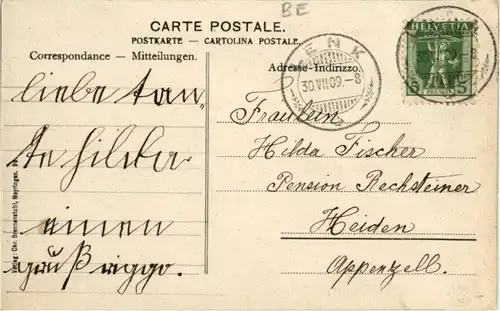 BE
CARTE POSTALE.
POSTKARTE — CARTOLINA POSTALE.
Correspondance — Mitteilungen.
Adresse-Indirizzo.
HELVETIA
5 5
LENK
30.VII.09.–8
liebe tan„
te hilda
einen
gruß riggo.
Fräulein
Hilda Fischer
Pension Rechsteiner
Heiden
Appenzell.
Verlag: Chr. Brennenstuhl, Meyringen.